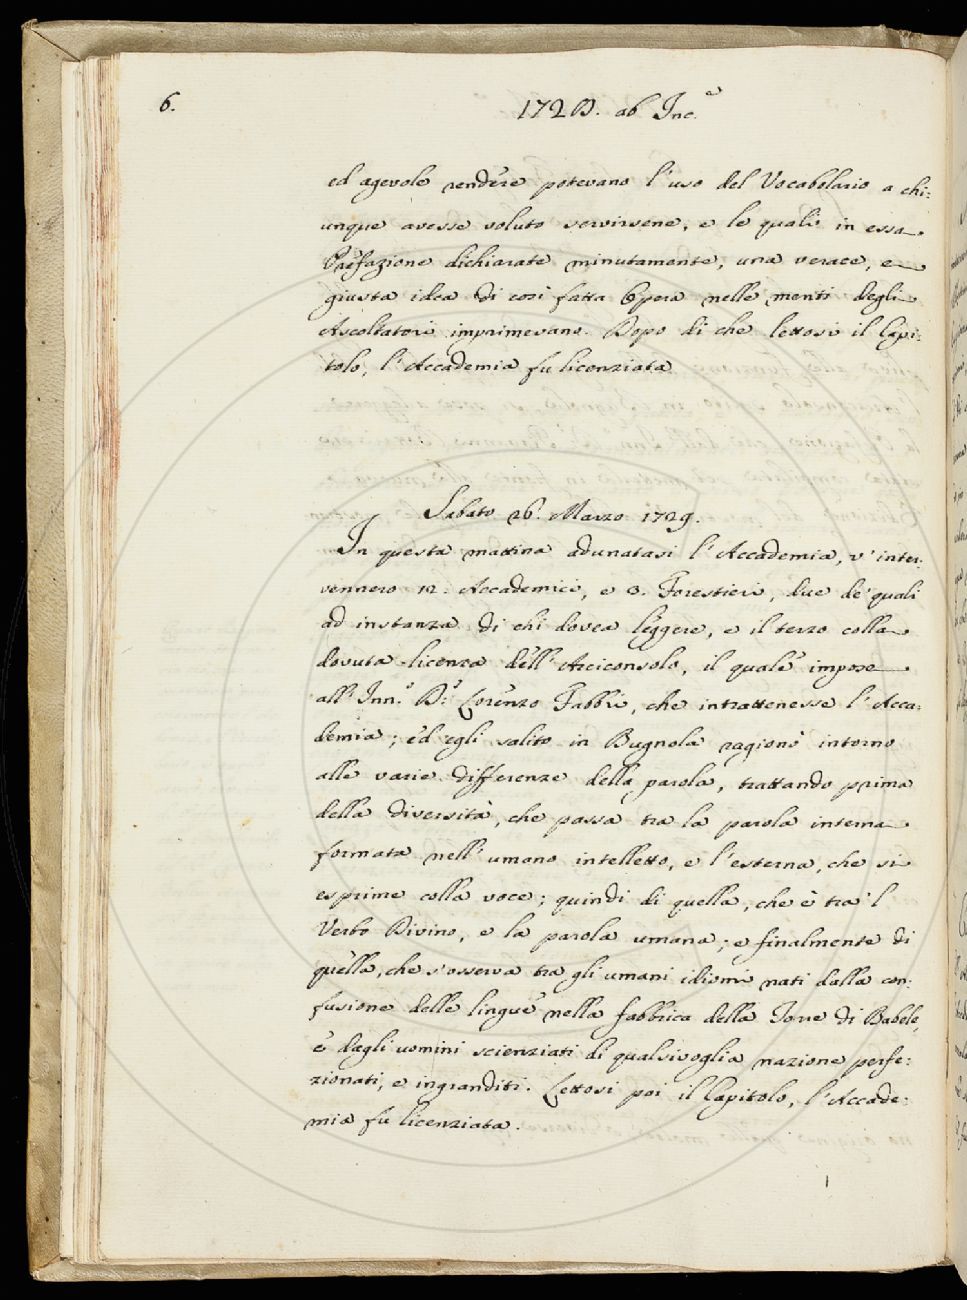 6.
1728. ab Inc.e
ed agevole rendere potevano l'uso del Vocabolario a chi:
unque avesse voluto servirsene, e le quali in essa
Prefazione dichiarate minutamente, una verace, e
giusta idea di così fatta Opera nelle menti degli
Ascoltatori imprimevano. Dopo di che lettosi il Capi:
tolo, l'Accademia fu licenziata
Sabato 26. Marzo 1729.
In questa mattina adunatasi l'Accademia, v'inter:
vennero 12. Accademici, e 3. Forestieri, due de' quali
ad instanza di chi dovea leggere, e il terzo colla
dovuta licenza dell'Arciconsolo, il quale impose
all'Inn.o D.e Lorenzo Fabbri, che intrattenesse l'Acca:
demia; ed egli salito in Bugnola ragionò intorno
alle varie differenze della parola, trattando prima
della diversità, che passa tra la parola interna
formata nell'umano intelletto, e l'esterna, che si
esprime colla voce; quindi di quella, che è tra 'l
Verbo Divino, e la parola umana; e finalmente di
quella, che s'osserva tra gli umani idiomi nati dalla con:
fusione delle lingue nella fabbrica della Torre di Babele,
e dagli uomini scienziati di qualsivoglia nazione perfe:
zionati, e ingranditi. Lettosi poi il Capitolo, l'Accade:
mia fu licenziata.